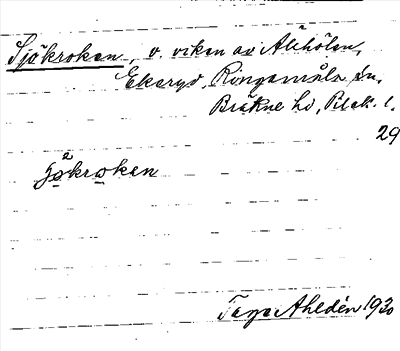 Sjökroken, v. viken av Alehölen,
Ekeryd, Ringamåla sn,
Bräkne hd, Blek. l.
29
jökroken
Tage Ahldén 1930